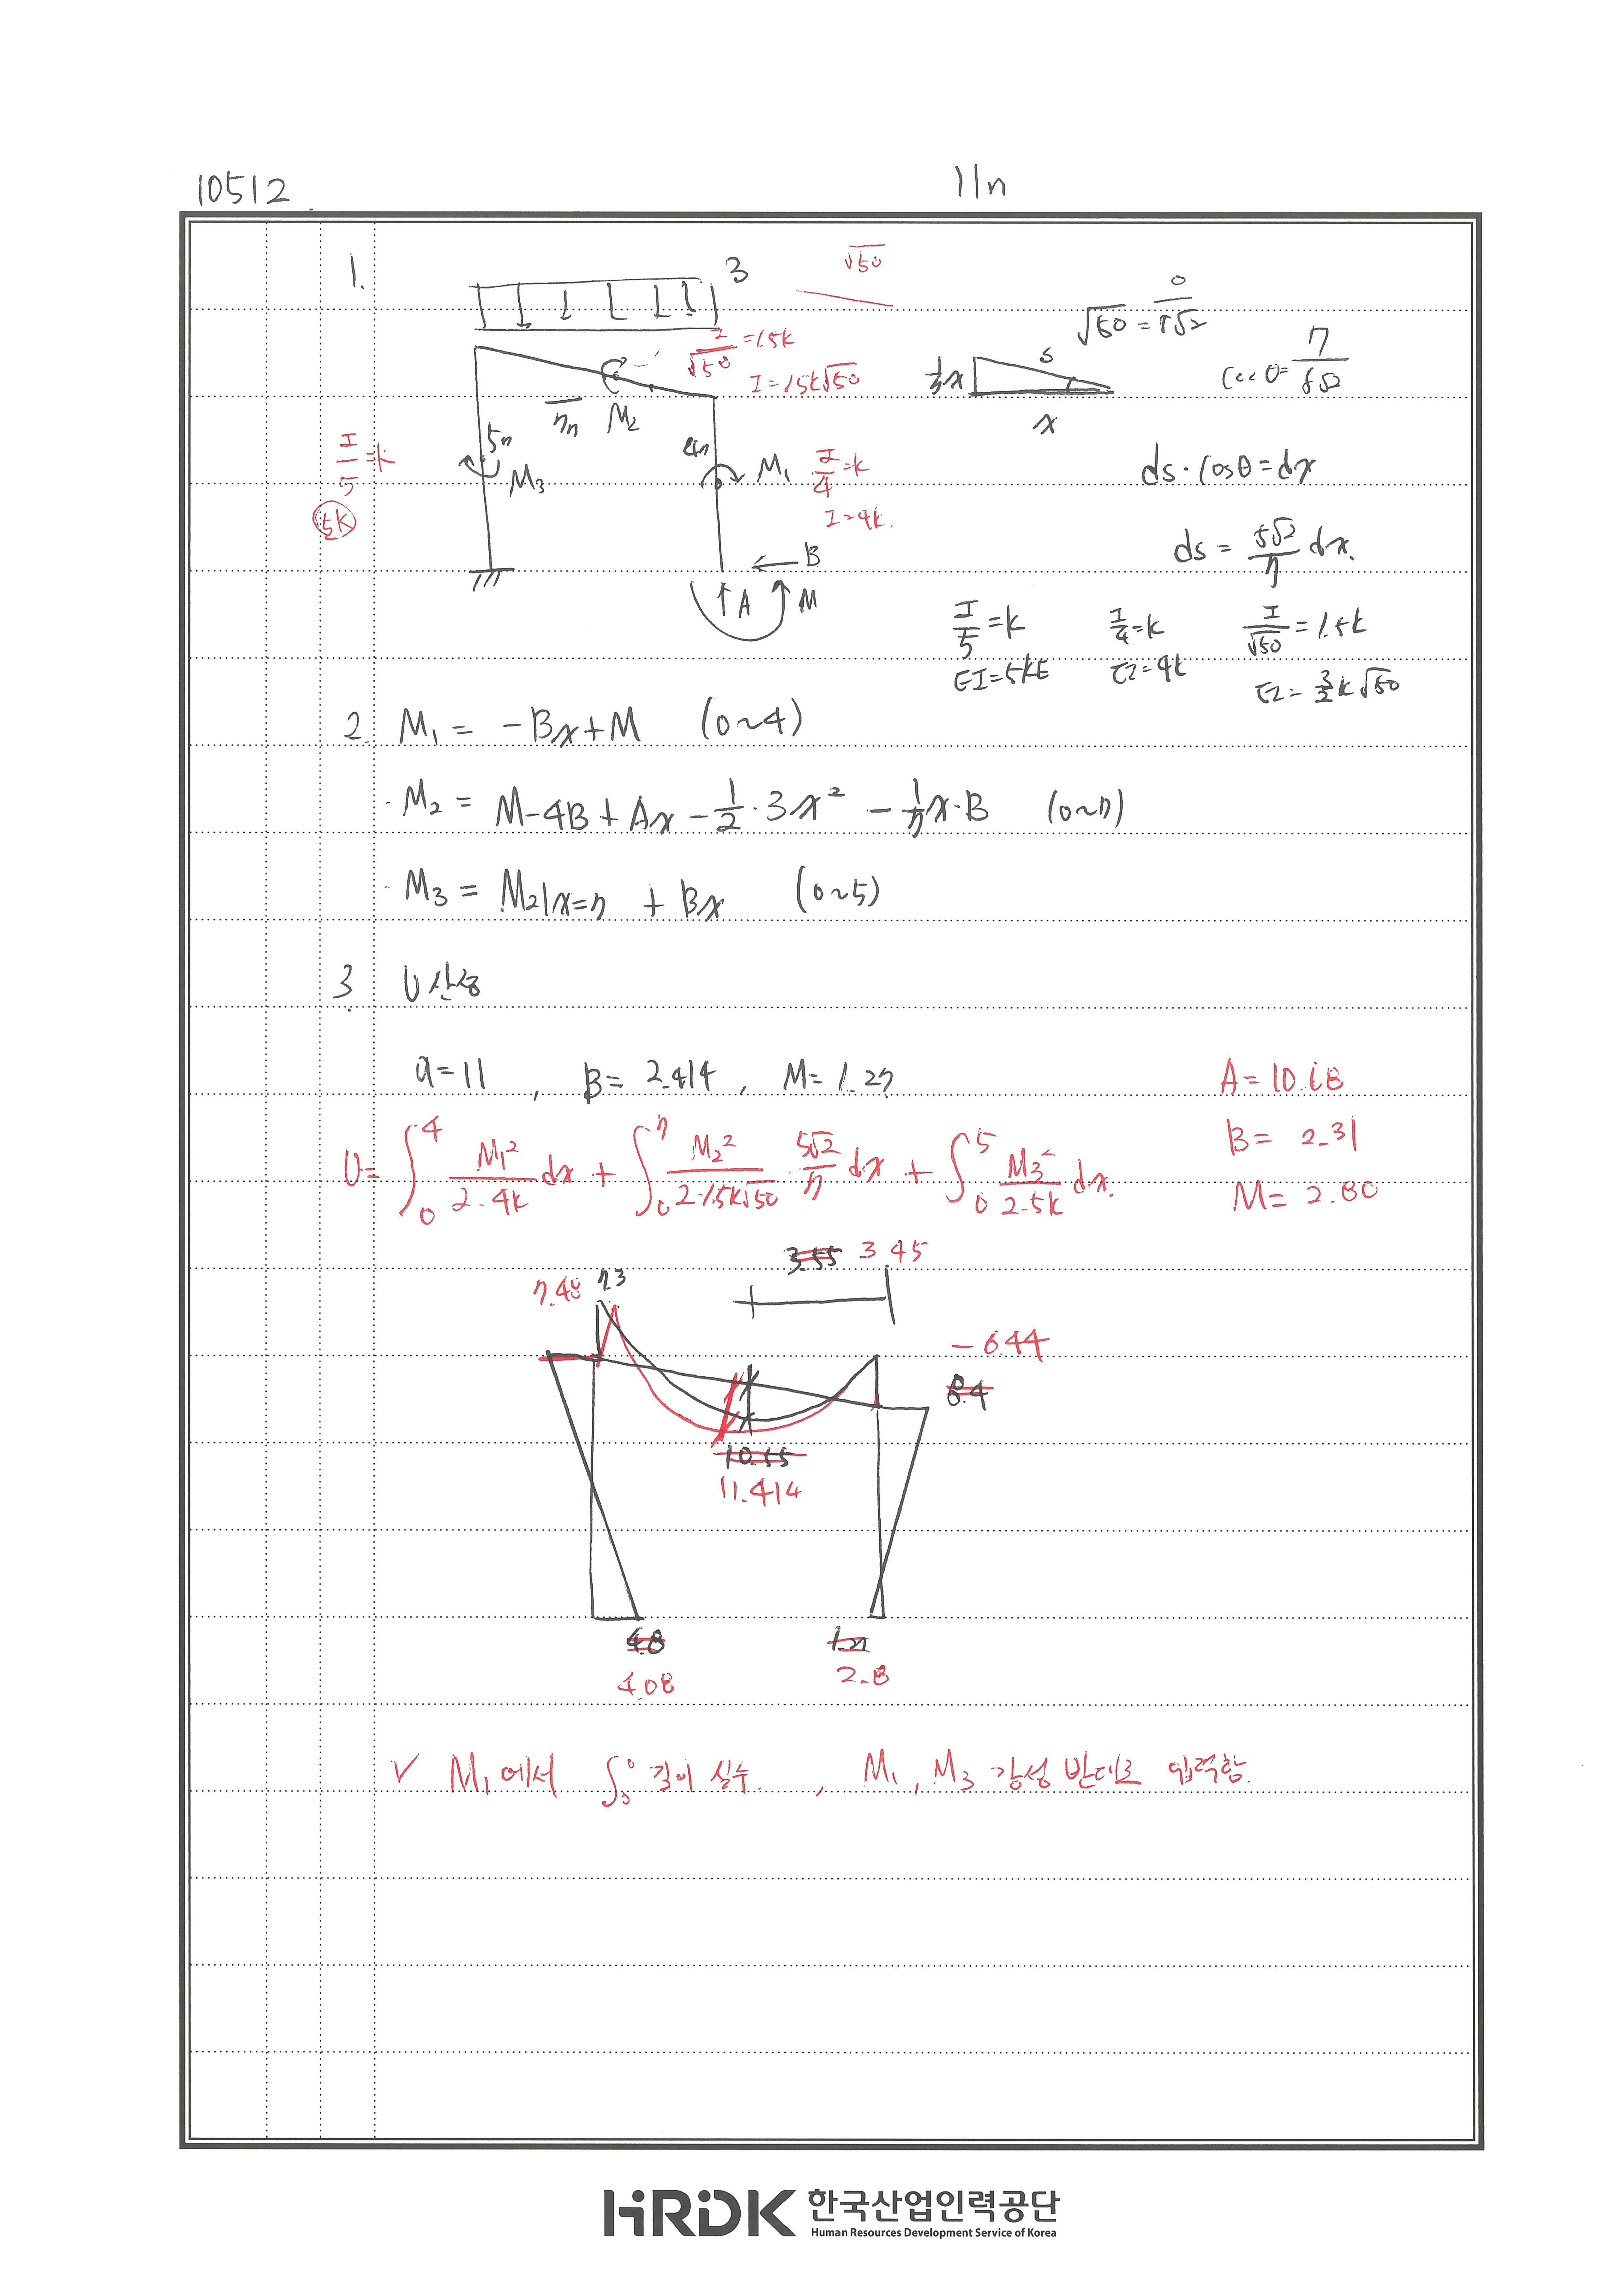 10512.
11n
1.
3
√50
2/√50 = 1.5k
I = 1.5k√50
√50 = 5√2
1/7x
s
x
7/5√2
7n
M2
5n
4n
I/5 = k
5k
M3
M1
I/4 = k
I = 4k.
ds · cosθ = dx
ds = 5√2/7 dx.
B
A
M
I/5 = k
I/4 = k
I/√50 = 1.5k
EI = 5kE
EI = 4k
EI = 3/2 k√50
2. M1 = -Bx+M (0~4)
· M2 = M-4B+Ax-1/2·3x² - 1/7x·B (0~7)
· M3 = M2|x=7 + Bx (0~5)
3. U 산정
a=11 , B= 2.414 , M= 1.27
A= 10.68
B= 2.31
M= 2.80
U= ∫₀⁴ M1²/2·4k dx + ∫₀⁷ M2²/2·1.5k√50 · 5√2/7 dx + ∫₀⁵ M3²/2·5k dx.
3.55 3.45
7.48 7.3
-6.44
8.4
10.55
11.414
4.8
1.27
4.08
2.8
√ M1에서 ∫ 길이 실수. , M1, M3 강성 반대로 입력함.
HRDK 한국산업인력공단
Human Resources Development Service of Korea